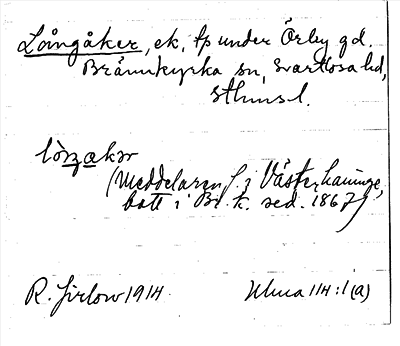 Långåker, ek, tp under Örby gd.
Brännkyrka sn, Svartlösa hd,
Sthms l.
lòŋakər
(Meddelaren f. i Västerhaninge,
bott i Br.k. sed. 1867)
R. Jirlow 1914. Ulma 114:1(a)